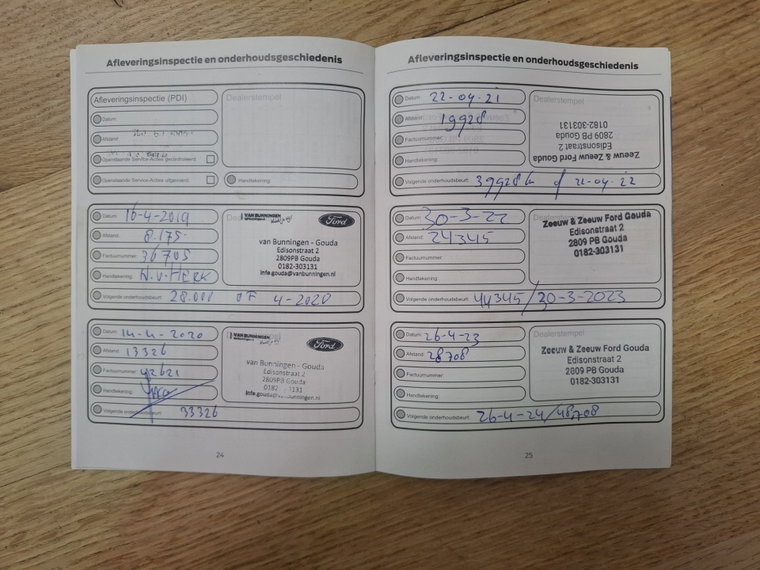 Afleveringsinspectie en onderhoudsgeschiedenis
Afleveringsinspectie (PDI)
Dealerstempel
Datum:
Afstand:
Openstaande Service-Acties gecontroleerd:
Openstaande Service-Acties uitgevoerd:
Handtekening:
Datum: 16-4-2019
Afstand: 8.175-
Factuurnummer: 36705
Handtekening: N.v.HERK
Volgende onderhoudsbeurt: 28.000 OF 4-2020
VAN BUNNINGEN
Ford
van Bunningen - Gouda
Edisonstraat 2
2809PB Gouda
0182-303131
info.gouda@vanbunningen.nl
Datum: 14-4-2020
Afstand: 13326
Factuurnummer: 42621
Handtekening:
Volgende onderhoudsbeurt: 33326
VAN BUNNINGEN
Ford
van Bunningen - Gouda
Edisonstraat 2
2809PB Gouda
0182 131
24
Afleveringsinspectie en onderhoudsgeschiedenis
Datum: 22-04-21
Afstand: 19928
Factuurnummer:
Handtekening:
Volgende onderhoudsbeurt: 39928 km of 22-04-22
Zeeuw & Zeeuw Ford Gouda
Edisonstraat 2
2809 PB Gouda
0182-303131
Datum: 30-3-22
Afstand: 24345
Factuurnummer:
Handtekening:
Volgende onderhoudsbeurt: 44345/30-3-2023
Zeeuw & Zeeuw Ford Gouda
Edisonstraat 2
2809 PB Gouda
0182-303131
Datum: 26-4-23
Afstand: 28708
Factuurnummer:
Handtekening:
Volgende onderhoudsbeurt: 26-4-24/48,708
Dealerstempel
Zeeuw & Zeeuw Ford Gouda
Edisonstraat 2
2809 PB Gouda
0182-303131
25